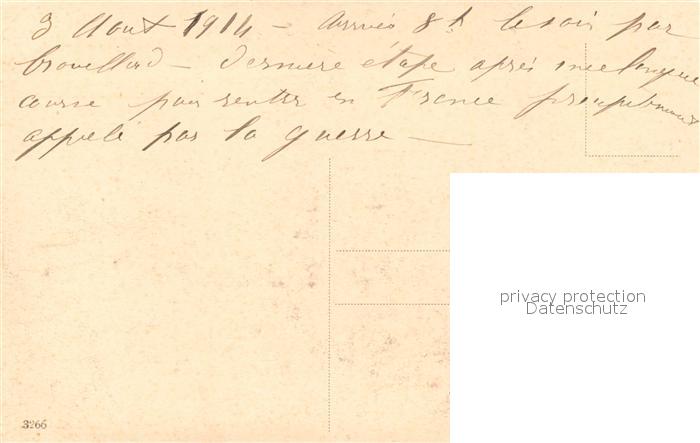 3 Aout 1914 - Arrivés 8h le soir par
brouillard - Dernière étape après une longue
course pour rentrer en France
appelé par la guerre -
privacy protection
Datenschutz
3266